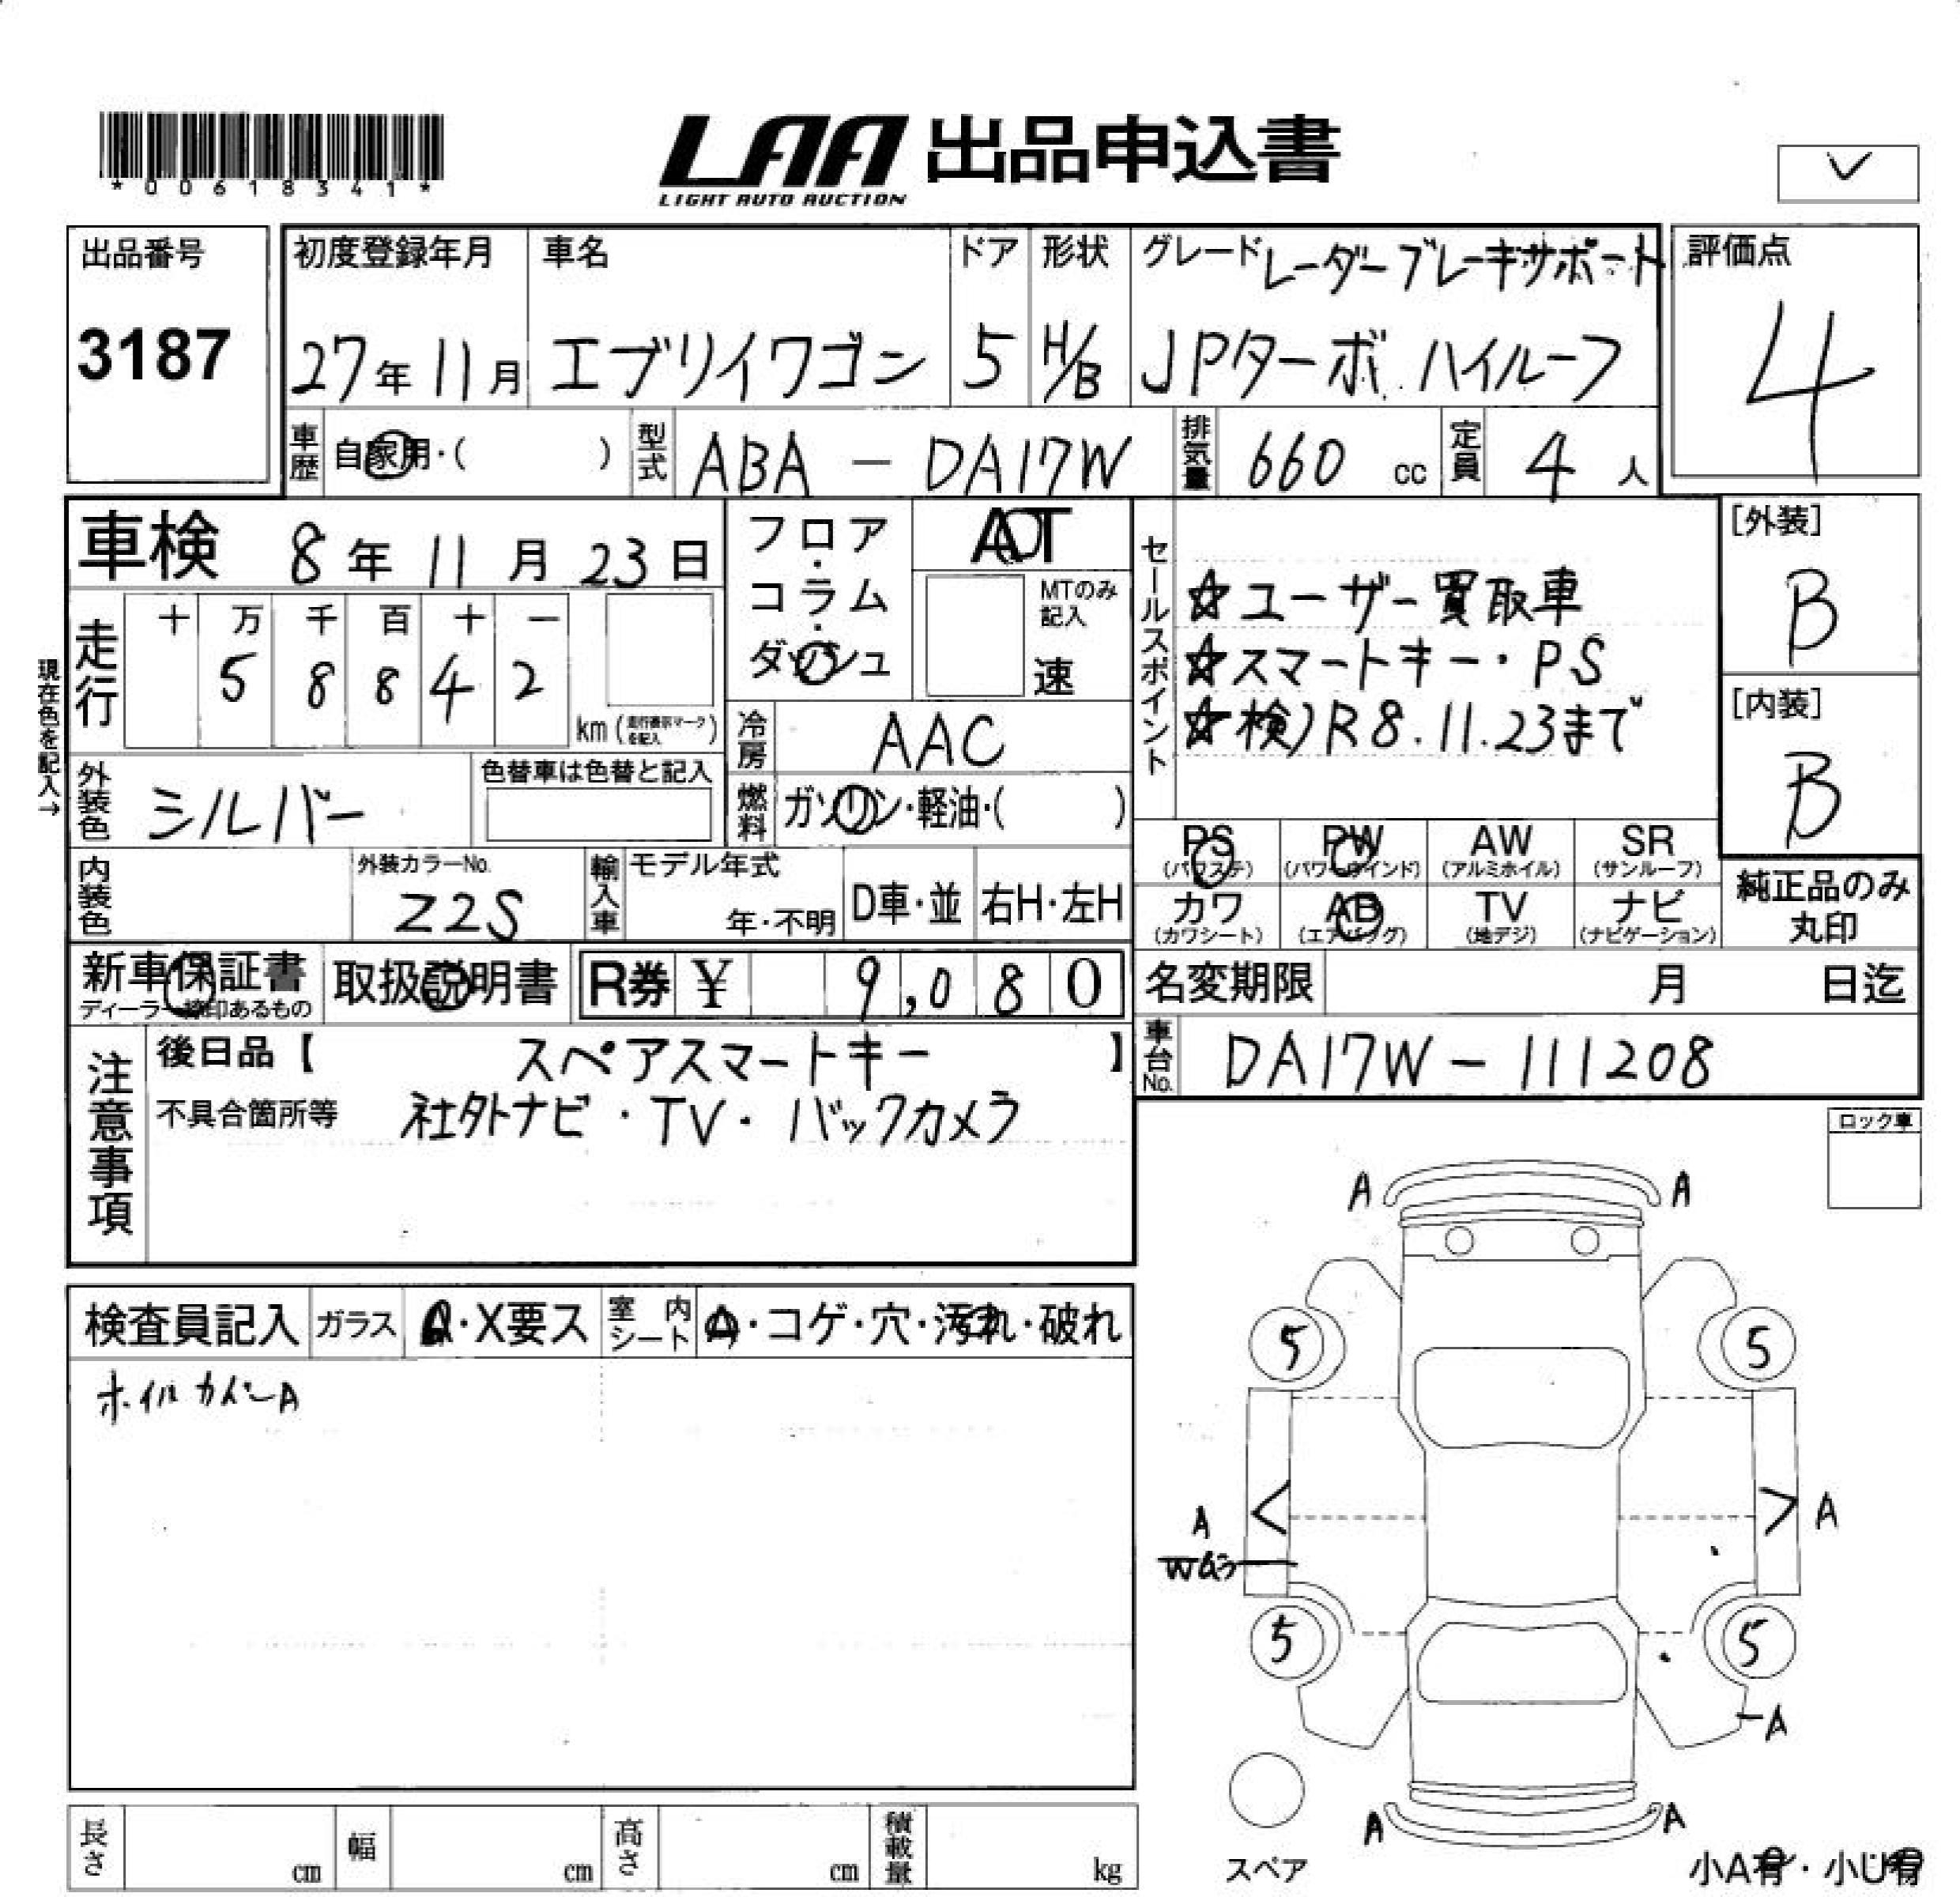 *00618341*
LAA 出品申込書
LIGHT AUTO AUCTION
出品番号
3187
初度登録年月
27年11月
車名
エブリイワゴン
ドア
5
形状
H/B
グレード レーダーブレーキサポート
JPターボ ハイルーフ
評価点
4
車歴 自家用・( )
型式 ABA - DA17W
排気量 660 cc
定員 4 人
車検 8年11月23日
フロア・コラム・ダッシュ
AT
MTのみ記入
速
走行 十 万 千 百 十 一
5 8 8 4 2
km (走行表示マークを記入)
現在色を記入→
冷房 AAC
燃料 ガソリン・軽油・( )
外装色 シルバー
色替車は色替と記入
内装色
外装カラーNo.
Z2S
輸入車 モデル年式
年・不明
D車・並
右H・左H
セールスポイント
☆ユーザー買取車
☆スマートキー・PS
☆検)R8.11.23まで
[外装]
B
[内装]
B
PS (パワステ)
PW (パワーウインド)
AW (アルミホイル)
SR (サンルーフ)
カワ (カワシート)
AB (エアバッグ)
TV (地デジ)
ナビ (ナビゲーション)
純正品のみ
丸印
新車保証書
ディーラー捺印あるもの
取扱説明書
R券 ¥ 9,080
名変期限 月 日迄
車台No. DA17W - 111208
注意事項
後日品【 スペアスマートキー 】
不具合箇所等 社外ナビ・TV・バックカメラ
ロック車
検査員記入
ガラス A・X要ス
室内シート A・コゲ・穴・汚れ・破れ
ホイルカバーA
A A
5 5
A < > A
5 5
A
A A
スペア
小A有・小U有
長さ cm
幅 cm
高さ cm
積載量 kg